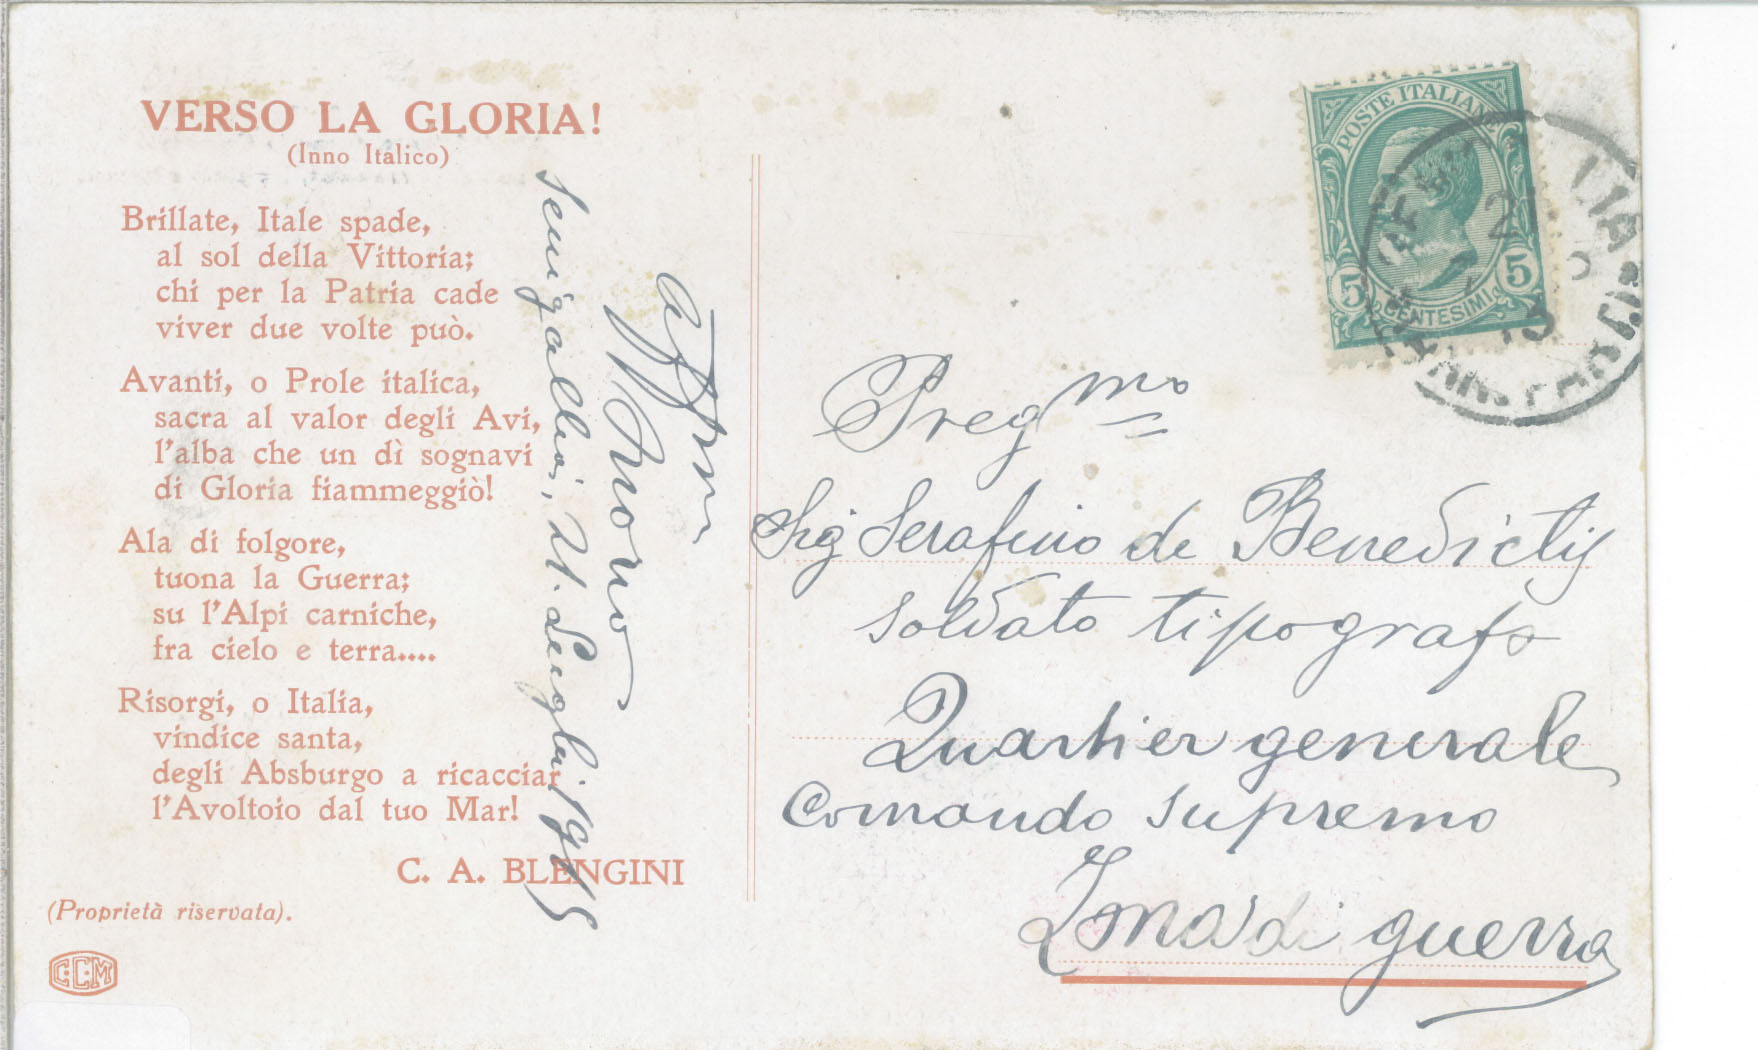 VERSO LA GLORIA!
(Inno Italico)
Brillate, Itale spade,
al sol della Vittoria;
chi per la Patria cade
viver due volte può.
Avanti, o Prole italica,
sacra al valor degli Avi,
l'alba che un dì sognavi
di Gloria fiammeggiò!
Ala di folgore,
tuona la Guerra;
su l'Alpi carniche,
fra cielo e terra....
Risorgi, o Italia,
vindice santa,
degli Absburgo a ricacciar
l'Avoltoio dal tuo Mar!
C. A. BLENGINI
(Proprietà riservata).
C.C.M
Senigallia, 21. Luglio 1915
Aff.m
Moro
POSTE ITALIANE
5 CENTESIMI 5
21
Pregmo
Sig Serafino de Benedictis
soldato tipografo
Quartier generale
Comando Supremo
Zona di guerra